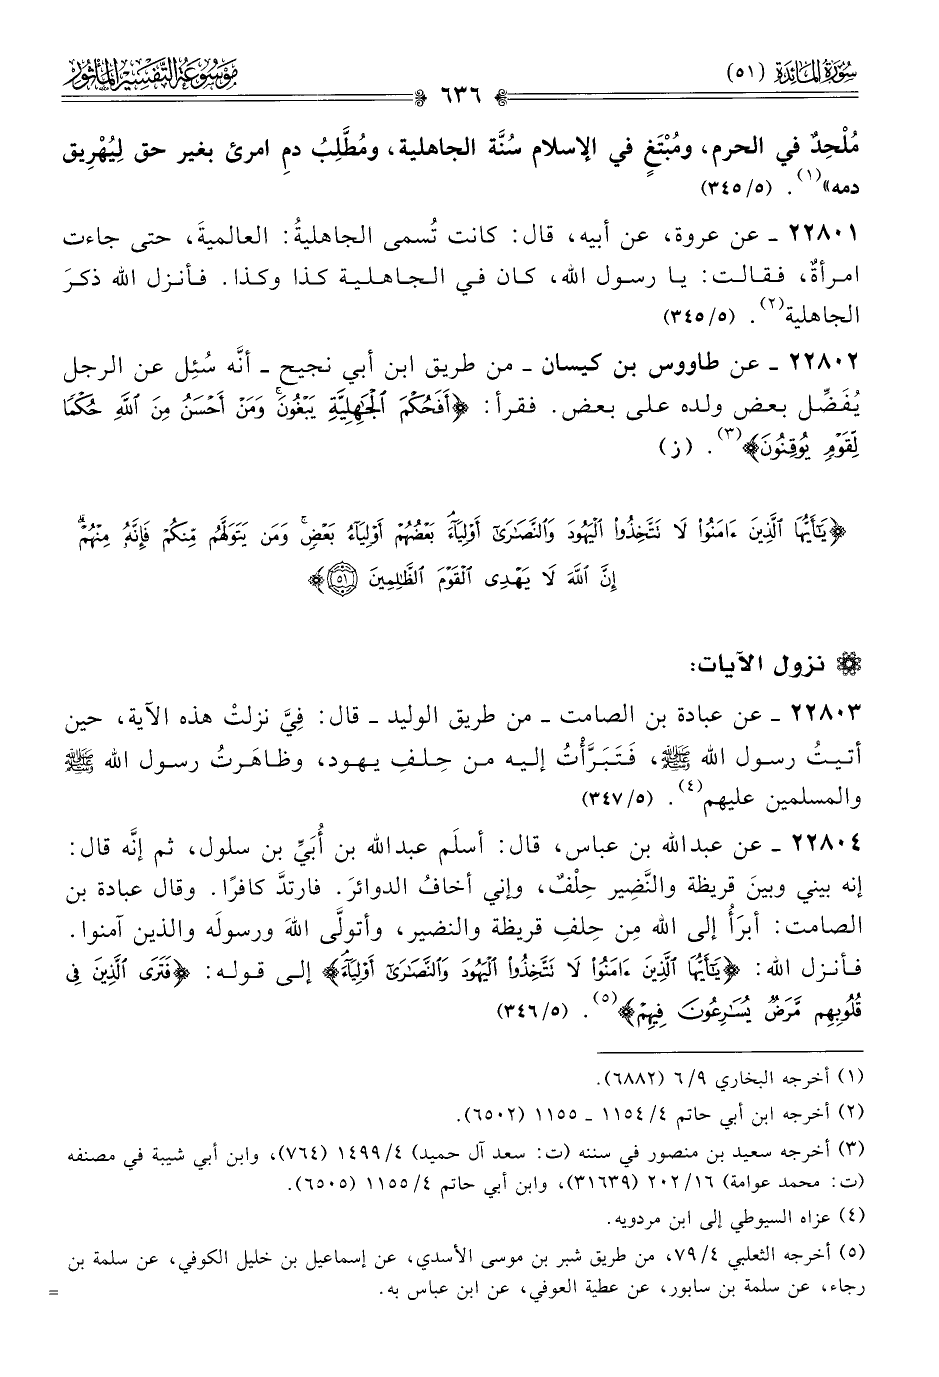 سُورَةُ المَائِدَة (٥١)
٦٣٦
مَوْسُوعَةُ التَّفْسِيْرِ المَأْثُور
مُلْحِدٌ في الحرم، ومُبْتَغٍ في الإسلام سُنَّة الجاهلية، ومُطَّلِبُ دمِ امرئ بغير حق لِيُهْرِيق
دمه»(١). (٣٤٥/٥)
٢٢٨٠١ ـ عن عروة، عن أبيه، قال: كانت تُسمى الجاهليةُ: العالميةَ، حتى جاءت
امرأةٌ، فقالت: يا رسول الله، كان في الجاهلية كذا وكذا. فأنزل الله ذكرَ
الجاهلية(٢). (٣٤٥/٥)
٢٢٨٠٢ ـ عن طاووس بن كيسان ـ من طريق ابن أبي نجيح ـ أنَّه سُئِل عن الرجل
يُفَضِّل بعض ولده على بعض. فقرأ: ﴿أَفَحُكْمَ ٱلْجَٰهِلِيَّةِ يَبْغُونَۚ وَمَنْ أَحْسَنُ مِنَ ٱللَّهِ حُكْمًا
لِّقَوْمٍ يُوقِنُونَ﴾(٣). (ز)
﴿يَٰٓأَيُّهَا ٱلَّذِينَ ءَامَنُوا۟ لَا تَتَّخِذُوا۟ ٱلْيَهُودَ وَٱلنَّصَٰرَىٰٓ أَوْلِيَآءَۘ بَعْضُهُمْ أَوْلِيَآءُ بَعْضٍۚ وَمَن يَتَوَلَّهُم مِّنكُمْ فَإِنَّهُۥ مِنْهُمْۗ
إِنَّ ٱللَّهَ لَا يَهْدِى ٱلْقَوْمَ ٱلظَّٰلِمِينَ ٥١﴾
نزول الآيات:
٢٢٨٠٣ ـ عن عبادة بن الصامت ـ من طريق الوليد ـ قال: فِيَّ نزلتْ هذه الآية، حين
أتيتُ رسول الله ﷺ، فَتَبَرَّأْتُ إليه من حِلفِ يهود، وظاهَرتُ رسول الله ﷺ
والمسلمين عليهم(٤). (٣٤٧/٥)
٢٢٨٠٤ ـ عن عبدالله بن عباس، قال: أسلَم عبدالله بن أُبَيِّ بن سلول، ثم إنَّه قال:
إنه بيني وبينَ قريظة والنَّضِير حِلْفٌ، وإني أخافُ الدوائرَ. فارتدَّ كافرًا. وقال عبادة بن
الصامت: أبرَأُ إلى الله مِن حِلفِ قريظة والنضير، وأتولَّى اللهَ ورسولَه والذين آمنوا.
فأنزل الله: ﴿يَٰٓأَيُّهَا ٱلَّذِينَ ءَامَنُوا۟ لَا تَتَّخِذُوا۟ ٱلْيَهُودَ وَٱلنَّصَٰرَىٰٓ أَوْلِيَآءَۘ﴾ إلى قوله: ﴿فَتَرَى ٱلَّذِينَ فِى
قُلُوبِهِم مَّرَضٌ يُسَٰرِعُونَ فِيهِمْ﴾(٥). (٣٤٦/٥)
(١) أخرجه البخاري ٦/٩ (٦٨٨٢).
(٢) أخرجه ابن أبي حاتم ١١٥٤/٤ ـ ١١٥٥ (٦٥٠٢).
(٣) أخرجه سعيد بن منصور في سننه (ت: سعد آل حميد) ١٤٩٩/٤ (٧٦٤)، وابن أبي شيبة في مصنفه
(ت: محمد عوامة) ٢٠٢/١٦ (٣١٦٣٩)، وابن أبي حاتم ١١٥٥/٤ (٦٥٠٥).
(٤) عزاه السيوطي إلى ابن مردويه.
(٥) أخرجه الثعلبي ٧٩/٤، من طريق شبر بن موسى الأسدي، عن إسماعيل بن خليل الكوفي، عن سلمة بن
رجاء، عن سلمة بن سابور، عن عطية العوفي، عن ابن عباس به. =